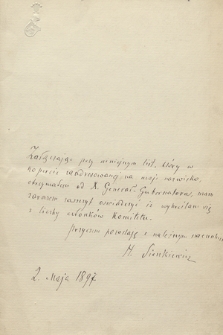 Załączając przy niniejszym list, który w
kopercie zaadresowanej na moje nazwisko,
otrzymałem od X. Generał Gubernatora, mam
zarazem zaszczyt oświadczyć iż wypisałem się
z liczby członków Komitetu.
pozostaję z należnym
H. Sienkiewicz
2. Maja 1897